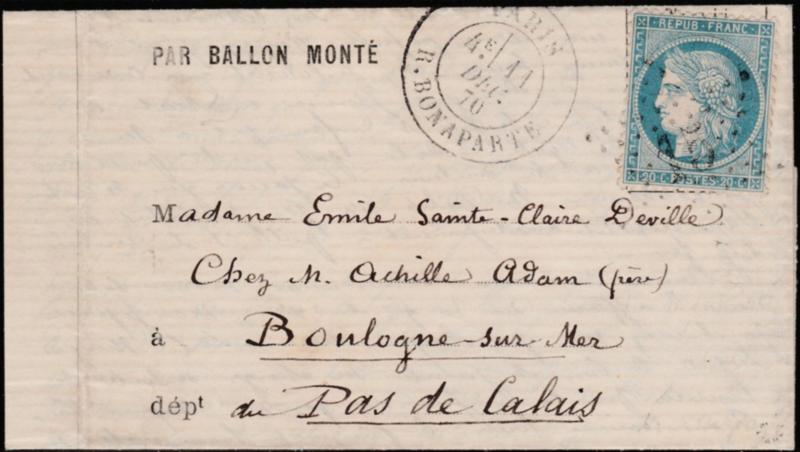 PAR BALLON MONTÉ
PARIS
4E 11
DEC.
70
R. BONAPARTE
REPUB. FRANC.
20 C. POSTES 20 C.
Madame Emile Sainte-Claire Deville
Chez M. Achille Adam (père)
à Boulogne-sur-Mer
dépt du Pas de Calais